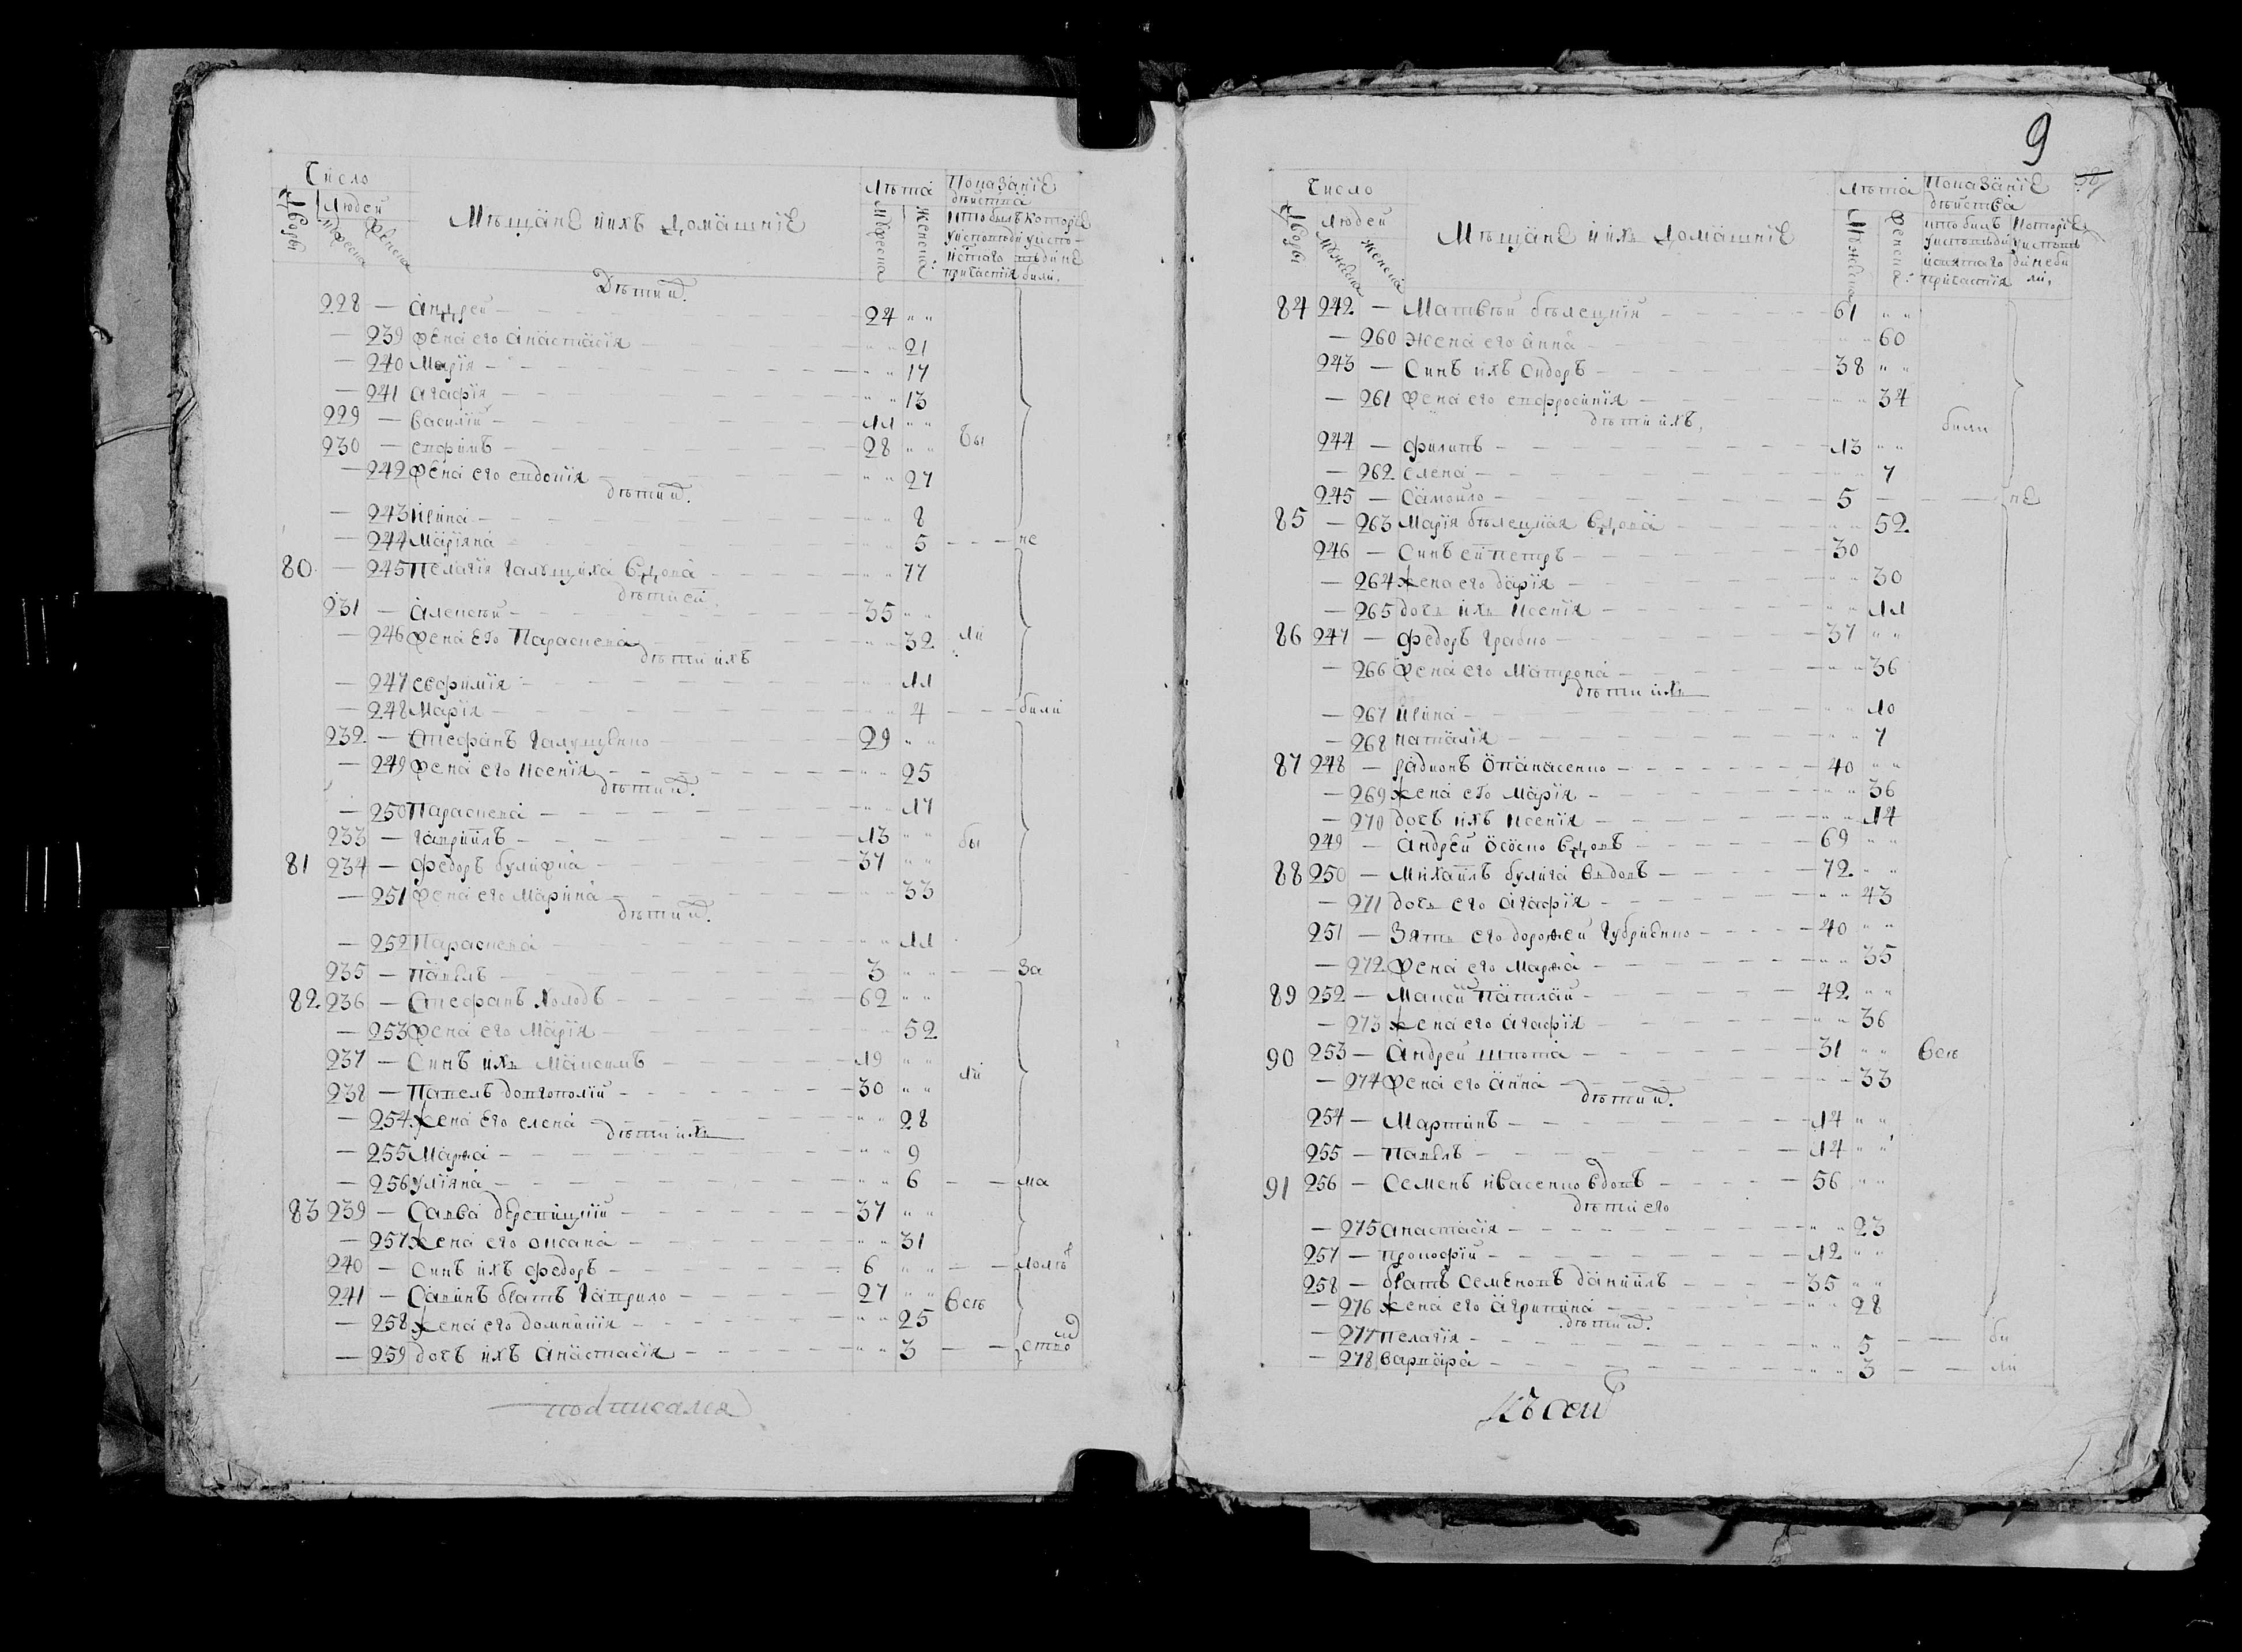 Число
Лѣта
Показанїе
дѣйства
Дворы
Людей
Мужеска
Женска
Мѣщане и ихъ домашнїе
Мужеска
Женска:
кто былъ
уисповѣди
причастїя
которїе
били.
Дѣти их.
228 — андрей — 24 „ „
— 239 жена его анастасїя — „ „ 21
— 240 Марїя — „ „ 17
— 241 агафїя — „ „ 13
229 — василїй — 11 „ „
230 — ефимъ — 28 „ „ бы
— 242 жена его евдокїя — „ „ 27
дѣти их.
— 243 ирина — „ „ 8
— 244 Марїяна — „ „ 5 — — не
80 — 245 Пелагїя галущиха вдова — „ „ 77
дѣти ей
231 — алексѣй — 35 „ „
— 246 жена его Параскева — „ „ 32 ли
дѣти ихъ
— 247 евфимїя — „ „ 11
— 248 Марїя — „ „ 4 — — били
232 — Стефанъ галущенко — 29 „ „
— 249 жена его ксенїя — „ „ 25
дѣти их.
— 250 Параскева — „ „ 17
233 — гаврїилъ — 13 „ „ бы
81 234 — федоръ булижка — 37 „ „
— 251 жена его Марина — „ „ 33
дѣти их.
— 252 Параскева — „ „ 11
235 — павелъ — 3 „ „ — — за
82 236 — Стефанъ холодъ — 62 „ „
— 253 жена его Марїя — „ „ 52
237 — Синъ ихъ Максимъ — 19 „ „ ли
238 — Павелъ довгополїй — 30 „ „
— 254 жена его елена — „ „ 28
дѣти ихъ
— 255 Марѳа — „ „ 9
— 256 улїяна — „ „ 6 — — ма
83 239 — Савва деревицкїй — 37 „ „
— 257 жена его оксана — „ „ 31
240 — Синъ ихъ федоръ — 6 „ „ — — лолѣ
241 — Савинъ братъ гаврило — 27 „ „ всѣ
— 258 жена его домникїя — „ „ 25
— 259 дочъ ихъ анастасїя — „ „ 3 — — ство
подписался
9
Число
Лѣта
Показанїе
дѣйства
Дворы
Людей
Мужеска
Женска
Мѣщане и ихъ домашнїе
Мужеска
Женск:
кто билъ
уисповѣди
исвятаго
причастїя
которїе
уисповѣ
ди неби
ли,
84 242 — Матвѣй бѣлецкїй — 61 „ „
— 260 жена его анна — „ „ 60
243 — Синъ ихъ сидоръ — 38 „ „
— 261 жена его евфросинїя — „ „ 34
дѣти ихъ, били
244 — филипъ — 13 „ „
— 262 елена — „ „ 7
245 — Самойло — 5 — — не
85 — 263 Марїя бѣлецкая вдова — „ „ 52
246 — Синъ ей петръ — 30
— 264 жена его дарїя — „ „ 30
— 265 дочь ихъ ксенїя — „ „ 11
86 247 — федоръ грабко — 37 „ „
— 266 жена его Матрона — „ „ 36
дѣти ихъ
— 267 ирина — „ „ 10
— 268 наталїя — „ „ 7
87 248 — радионъ опанасенко — 40 „ „
— 269 жена его Марїя — „ „ 36
— 270 дочъ ихъ ксенїя — „ „ 14
249 — андрей вдовъ — 69 „ „
88 250 — Михаилъ булига вдовъ — 72 „ „
— 271 дочь его агафїя — „ „ 43
251 — Зять его дорожѳей губриенко — 40 „ „
— 272 жена его Марѳа — „ „ 35
89 252 — Мацей Патлай — 42 „ „
— 273 жена его агафїя — „ „ 36
90 253 — андрей шпота — 31 „ „ всѣ
— 274 жена его анна — „ „ 33
дѣти их.
254 — Мартинъ — 14 „ „
255 — павелъ — 14 „ „
91 256 — Семенъ ивасенко вдовъ — 56 „ „
дѣти его
— 275 анастасїя — „ „ 23
257 — прокофїй — 12 „ „
258 — братъ Семеновъ данїилъ — 35 „ „
— 276 жена его агрипина — „ „ 28
дѣти их.
— 277 пелагїя — „ „ 5 — — би
— 278 варвара — „ „ 3 — — ли
Къ сей